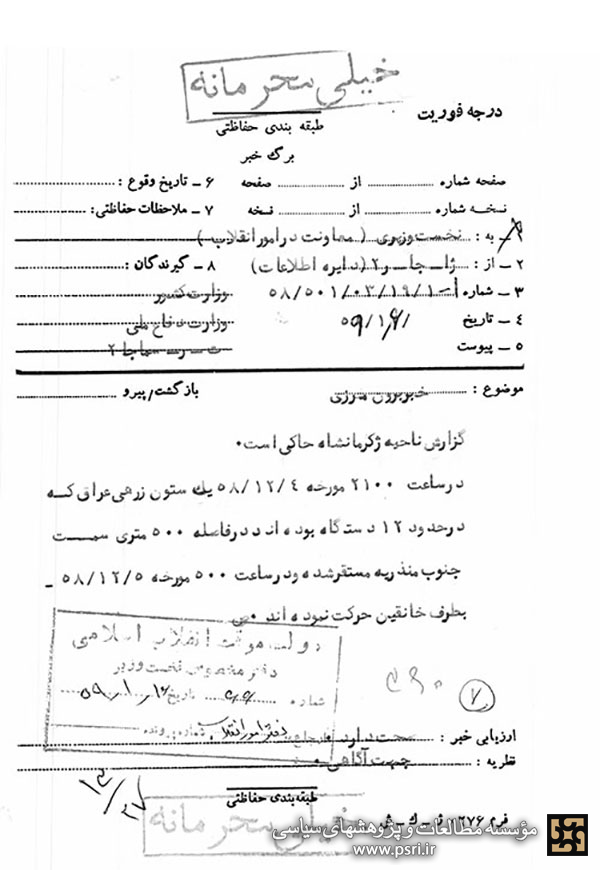 خیلی محرمانه
درجه فوریت
طبقه بندی حفاظتی
برگ خبر
صفحه شماره ........ از ........ صفحه
۶ ـ تاریخ وقوع :
نسخه شماره ........ از ........ نسخه
۷ ـ ملاحظات حفاظتی:
۱ ـ به : نخست وزیری ( معاونت در امور انقلاب )
۲ ـ از : ژاـ جاـ ر۲ (دایره اطلاعات)
۸ ـ گیرندگان :
۳ ـ شماره ۵۸/۵۰۱/۰۳/۱۹/۱۰۱
وزارت کشور
۴ ـ تاریخ
وزارت دفاع ملی
۵ ـ پیوست
سماجا ۲
موضوع : خبر برون مرزی
بازگشت/پیرو
گزارش ناحیه ژ کرمانشاه حاکی است۰
در ساعت ۲۱۰۰ مورخه ۵۸/۱۲/۴ یک ستون زرهی عراق که
در حدود ۱۲ دستگاه بوده اند در فاصله ۵۰۰ متری سمت
جنوب منذریه مستقر شده و در ساعت ۵۰۰ مورخه ۵۸/۱۲/۵ ـ
بطرف خانقین حرکت نموده اند ۰ص
دولت موقت انقلاب اسلامی
دفتر مخصوص نخست وزیر
شماره ۶۶ تاریخ
دفتر امور انقلاب
شماره پرونده
۷
ارزیابی خبر : صحت دارد ۰
نظریه : جهت آگاهی ۰
۱۲/۲۷
طبقه بندی حفاظتی
خیلی محرمانه
فرم ۱۲۷۶
مؤسسه مطالعات و پژوهشهای سیاسی
www.psri.ir